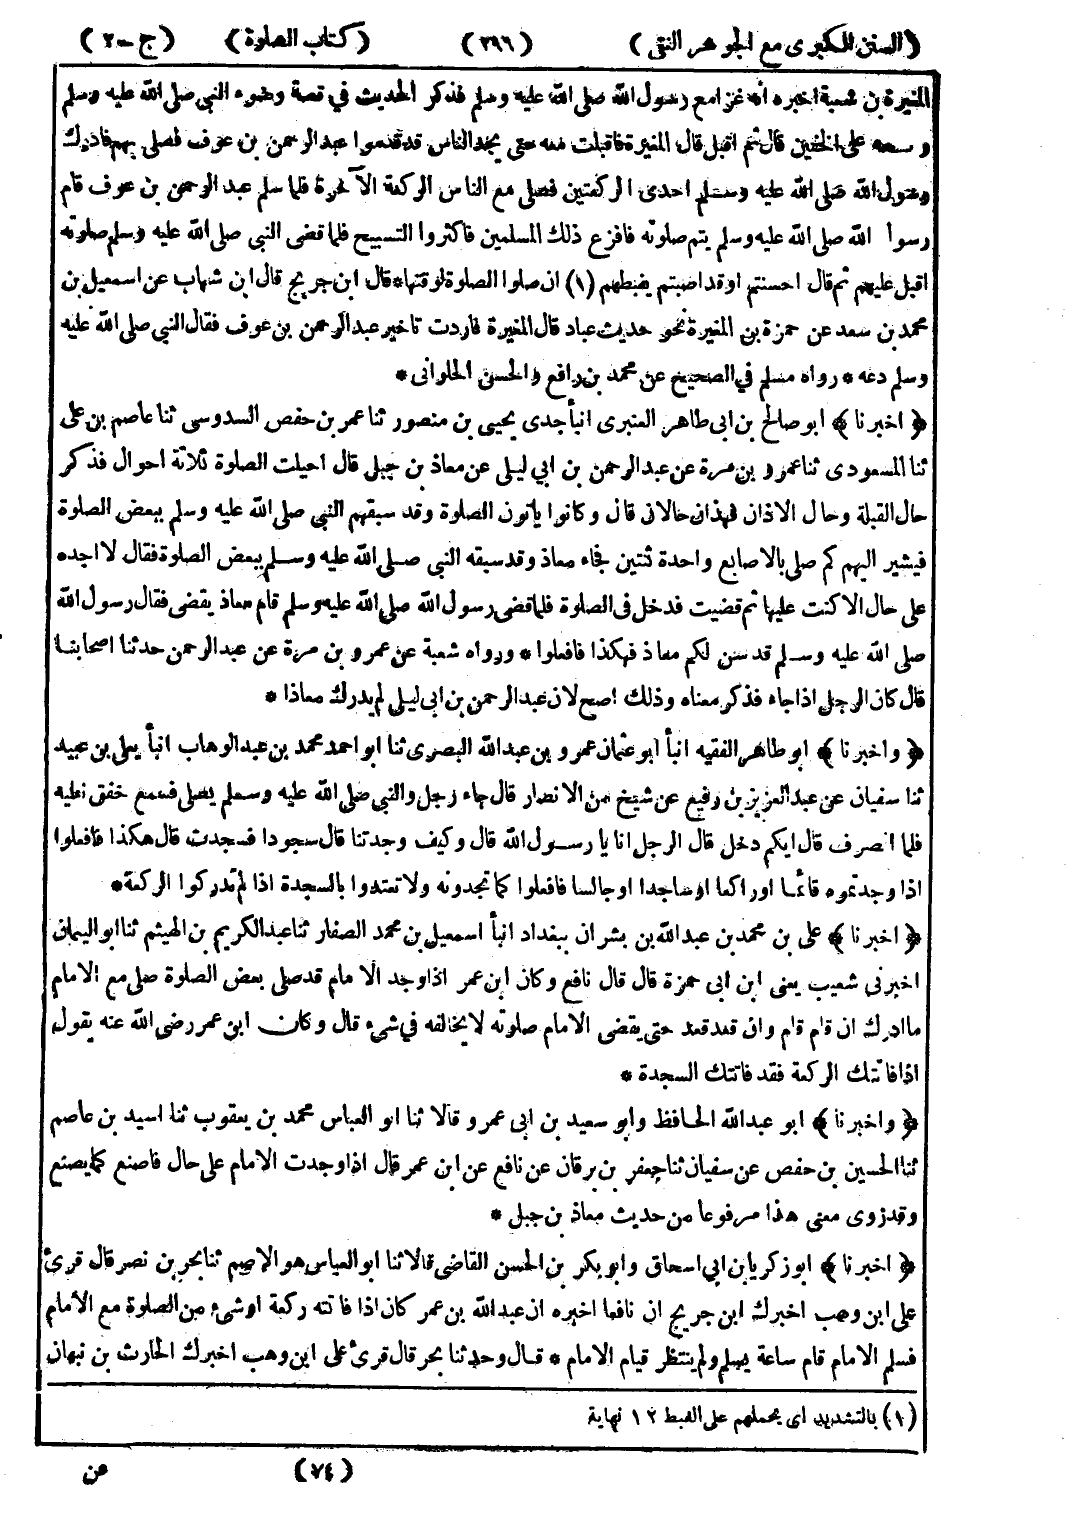 (السنن الكبرى مع الجوهر النقى) (٢٩٦) (كتاب الصلوة) (ج-٢)
المغيرة بن شعبة اخبره انه غزا مع رسول الله صلى الله عليه وسلم فذكر الحديث في قصة وضوء النبي صلى الله عليه وسلم
و مسحه على الخفين قال ثم اقبل قال المغيرة فاقبلت معه حتى يجد الناس قد قدموا عبدالرحمن بن عوف فصلى بهم فادرك
رسول الله صلى الله عليه وسلم احدى الركعتين فصلى مع الناس الركعة الآخرة فلما سلم عبد الرحمن بن عوف قام
رسول الله صلى الله عليه وسلم يتم صلوته فافزع ذلك المسلمين فاكثروا التسبيح فلما قضى النبي صلى الله عليه وسلم صلوته
اقبل عليهم ثم قال احسنتم او قد اصبتم يغبطهم (١) ان صلوا الصلوة لوقتها * قال ابن جريج قال ابن شهاب عن اسمعيل بن
محمد بن سعد عن حمزة بن المغيرة نحو حديث عباد قال المغيرة فاردت تاخير عبدالرحمن بن عوف فقال النبي صلى الله عليه
وسلم دعه * رواه مسلم في الصحيح عن محمد بن رافع والحسن الحلوانى *
﴿ اخبرنا ﴾ ابو صالح بن ابى طاهر العنبرى انبأ جدى يحيى بن منصور ثنا عمر بن حفص السدوسى ثنا عاصم بن على
ثنا المسعودى ثنا عمرو بن مرة عن عبدالرحمن بن ابي ليلى عن معاذ بن جبل قال احيلت الصلوة ثلاثة احوال فذكر
حال القبلة وحال الاذان فهذان حالان قال وكانوا يأتون الصلوة وقد سبقهم النبي صلى الله عليه وسلم ببعض الصلوة
فيشير اليهم كم صلى بالاصابع واحدة ثنتين فجاء معاذ وقد سبقه النبي صلى الله عليه وسلم ببعض الصلوة فقال لا اجده
على حال الا كنت عليها ثم قضيت فدخل فى الصلوة فلما قضى رسول الله صلى الله عليه وسلم قام معاذ يقضى فقال رسول الله
صلى الله عليه وسلم قد سن لكم معاذ فهكذا فافعلوا * ورواه شعبة عن عمرو بن مرة عن عبدالرحمن حدثنا اصحابنا
قال كان الرجل اذا جاء فذكر معناه وذلك اصح لان عبدالرحمن بن ابى ليلى لم يدرك معاذا *
﴿ واخبرنا ﴾ ابو طاهر الفقيه انبأ ابو عثمان عمرو بن عبدالله البصرى ثنا ابو احمد محمد بن عبدالوهاب انبأ يعلى بن عبيد
ثنا سفيان عن عبدالعزيز بن رفيع عن شيخ من الانصار قال جاء رجل والنبي صلى الله عليه وسلم يصلى فسمع خفق نعليه
فلما انصرف قال ايكم دخل قال الرجل انا يا رسول الله قال وكيف وجدتنا قال سجودا فسجدت قال هكذا فافعلوا
اذا وجدتموه قائما او راكعا او ساجدا او جالسا فافعلوا كما تجدونه ولا تعتدوا بالسجدة اذا لم تدركوا الركعة *
﴿ اخبرنا ﴾ على بن محمد بن عبدالله بن بشران ببغداد انبأ اسمعيل بن محمد الصفار ثنا عبدالكريم بن الهيثم ثنا ابو اليمان
اخبرني شعيب يعنى ابن ابى حمزة قال قال نافع وكان ابن عمر اذا وجد الامام قد صلى بعض الصلوة صلى مع الامام
ما ادرك ان قام قام وان قعد قعد حتى يقضى الامام صلوته لا يخالفه في شىء قال وكان ابن عمر رضى الله عنه يقول
اذا فاتتك الركعة فقد فاتتك السجدة *
﴿ واخبرنا ﴾ ابو عبدالله الحافظ وابو سعيد بن ابى عمرو قالا ثنا ابو العباس محمد بن يعقوب ثنا اسيد بن عاصم
ثنا الحسين بن حفص عن سفيان ثنا جعفر بن برقان عن نافع عن ابن عمر قال اذا وجدت الامام على حال فاصنع كما يصنع
وقد روى معنى هذا مرفوعا من حديث معاذ بن جبل *
﴿ اخبرنا ﴾ ابو زكريا بن ابى اسحاق وابو بكر بن الحسن القاضى قالا ثنا ابو العباس هو الاصم ثنا بحر بن نصر قال قرئ
على ابن وهب اخبرك ابن جريج ان نافعا اخبره ان عبدالله بن عمر كان اذا فاتته ركعة او شىء من الصلوة مع الامام
فسلم الامام قام ساعة يسلم ولم ينتظر قيام الامام * قال وحدثنا بحر قال قرئ على ابن وهب اخبرك الحارث بن نبهان
(١) بالتشديد اى يحملهم على الغبط ١٢ نهاية
(٧٤) عن